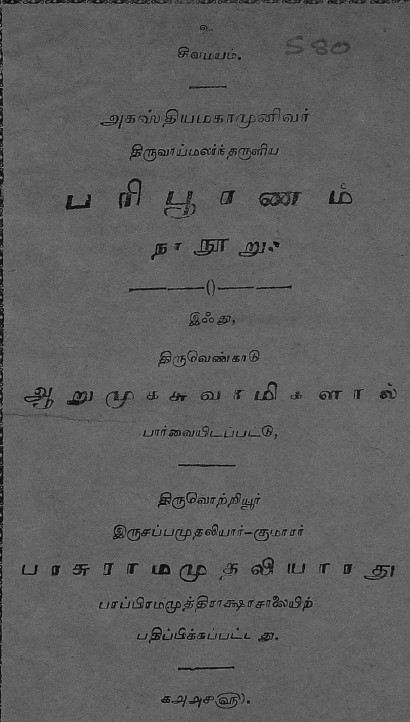 உ
சிவமயம்.
580
அகஸ்தியமகாமுனிவர்
திருவாய்மலர்ந்தருளிய
பரிபூரணம்
நாநூறு.
இஃது,
திருவெண்காடு
ஆறுமுகசுவாமிகளால்
பார்வையிடப்பட்டு,
திருவொற்றியூர்
இருசப்பமுதலியார்-குமாரர்
பரசுராமமுதலியாரது
பரப்பிரமமுத்திராக்ஷரசாலையிற்
பதிப்பிக்கப்பட்டது.